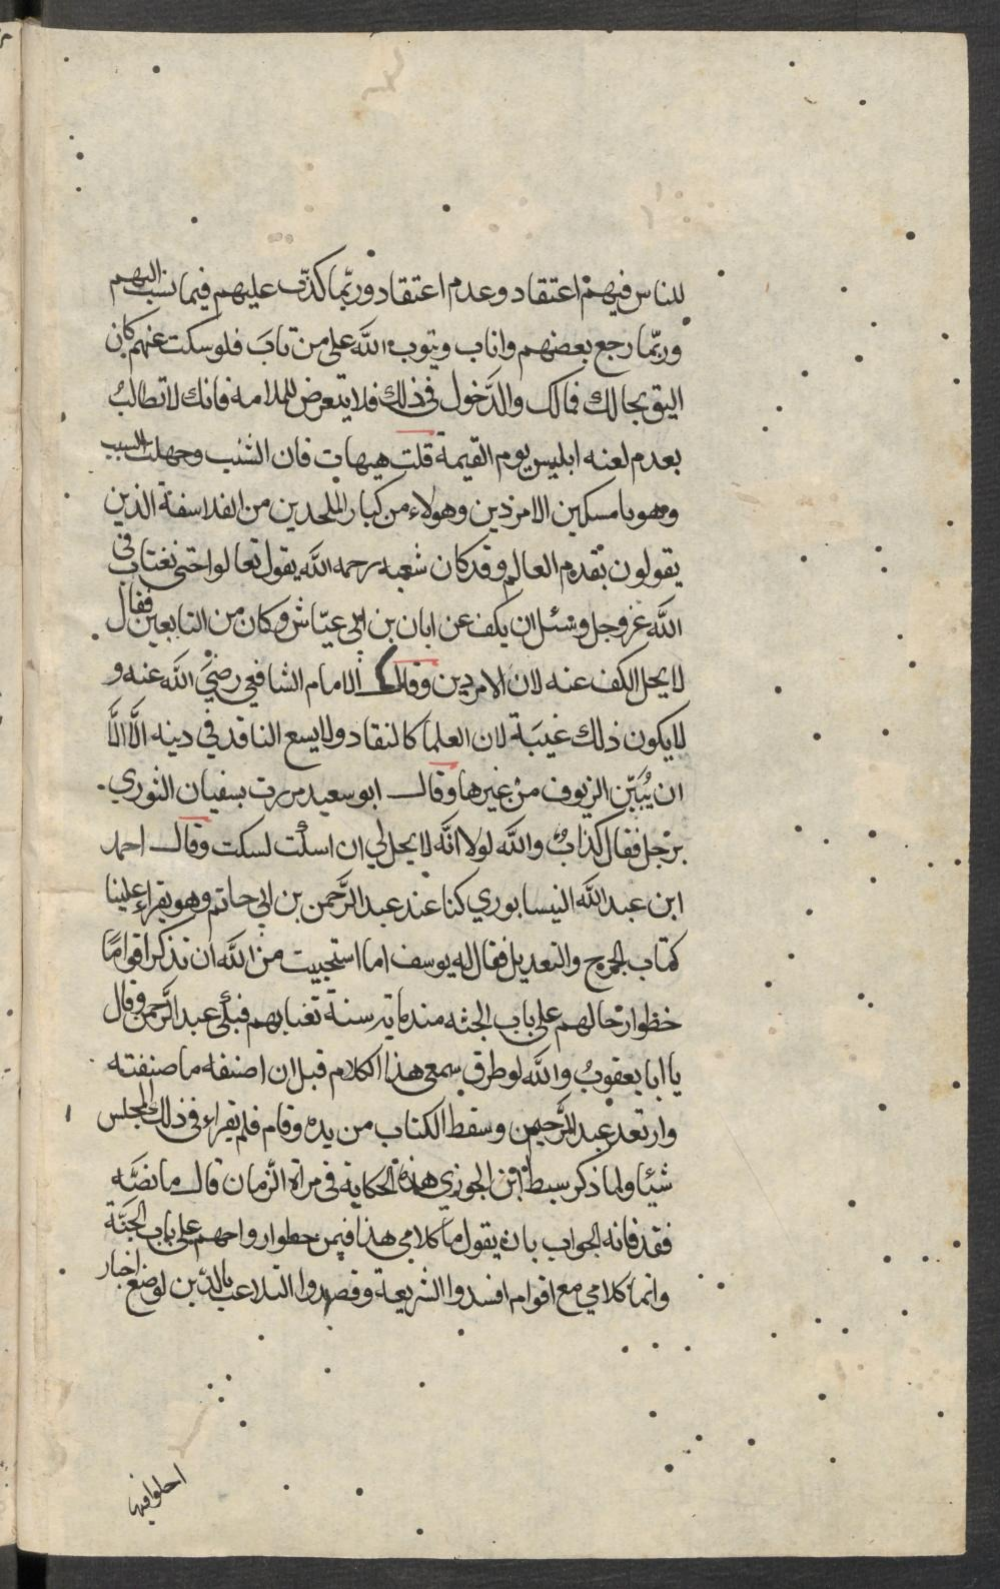 للناس فيهم اعتقاد وعدم اعتقاد وربّما كذب عليهم فيما نسب اليهم
وربّما رجع بعضهم واناب ويتوب الله على من تابَ فلو سكت عنهم كان
اليق بحالك فمالك والدَّخول فى ذلك فلا يتعرض للملامة فانك لا تطالبُ
بعدم لعنه ابليس يوم القيمة قلت هيهات فان الشنب وجهلت السبب
وهو يا مسكين الامر دين وهولاء من كبار الملحدين من الفلاسفة الذين
يقولون بقدم العالم وقد كان شعبه رحمه الله يقول تعالوا حتى نغتاب فى
الله عز وجل وسئل ان يكف عن ابان بن ابي عيّاش وكان من التابعين فقال
لا يحل الكف عنه لان الامر دين وقال الامام الشافعي رضيَ الله عنه و
لا يكون ذلك غيبَة لان العلما كالنقاد ولا يسع الناقد في دينه الَّا الَّا
ان يُبَيّن الزيوف من غيرها وقال ابو سعيد مررت بسفيان الثوري
برجل فقال كذابٌ والله لولا انَّه لا يحل لي ان اسكت لسكت وقال احمد
ابن عبد الله النيسابوري كنا عند عبد الرَّحمن بن ابي حاتم وهو يقراء علينا
كتاب الجرح والتعديل فقال له يوسف اما استحييت من الله ان تذكر اقوامًا
حطوا رحالهم على باب الجنه منذ ماية سنة تغتابهم فبكى عبد الرَّحمن وقال
يا ابا يعقوبُ والله لو طرق سمعى هذا الكلام قبل ان اصنفه ما صنفته
وارتعد عبد الرَّحيمن وسقط الكتاب من يده وقام فلم يقراء في ذلك المجلس
شيًا ولما ذكر سبط ابن الجوزي هذه الحكاية فى مراة الزَّمان قال ما نصَّه
فقد فاته الجواب بان يقول ما كلامي هذا فيمن حطوا رواحهم على باب الجنَّة
وانما كلامي مع اقوام افسدوا الشريعة وقصدوا التلاعب بالدّين لوضع اخبار
احلوا فيها